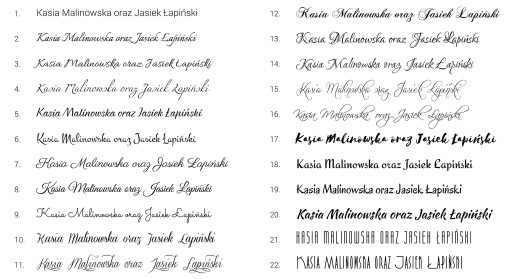 1. Kasia Malinowska oraz Jasiek Łapiński
2. Kasia Malinowska oraz Jasiek Łapiński
3. Kasia Malinowska oraz Jasiek Łapiński
4. Kasia Malinowska oraz Jasiek Łapiński
5. Kasia Malinowska oraz Jasiek Łapiński
6. Kasia Malinowska oraz Jasiek Łapiński
7. Kasia Malinowska oraz Jasiek Łapiński
8. Kasia Malinowska oraz Jasiek Łapiński
9. Kasia Malinowska oraz Jasiek Łapiński
10. Kasia Malinowska oraz Jasiek Łapiński
11. Kasia Malinowska oraz Jasiek Łapiński
12. Kasia Malinowska oraz Jasiek Łapiński
13. Kasia Malinowska oraz Jasiek Łapiński
14. Kasia Malinowska oraz Jasiek Łapiński
15. Kasia Malinowska oraz Jasiek Łapiński
16. Kasia Malinowska oraz Jasiek Łapiński
17. Kasia Malinowska oraz Jasiek Łapiński
18. Kasia Malinowska oraz Jasiek Łapiński
19. Kasia Malinowska oraz Jasiek Łapiński
20. Kasia Malinowska oraz Jasiek Łapiński
21. KASIA MALINOWSKA ORAZ JASIEK ŁAPIŃSKI
22. KASIA MALINOWSKA ORAZ JASIEK ŁAPIŃSKI